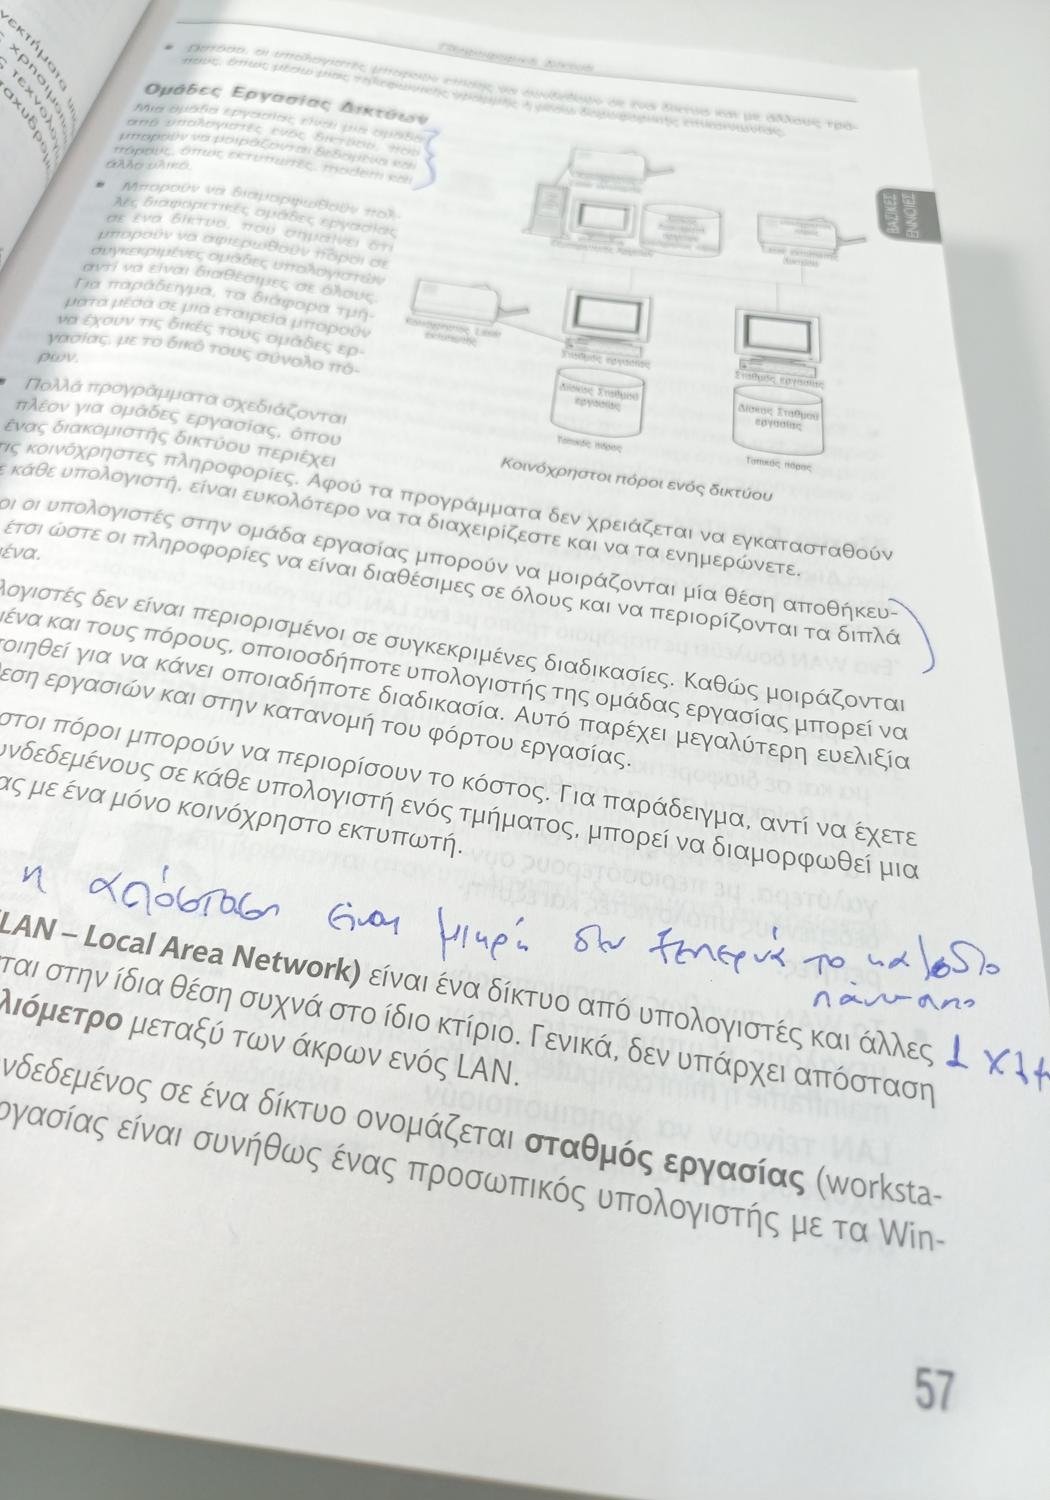 Πληροφορική Δίκτυα
• Ωστόσο, οι υπολογιστές μπορούν επίσης να συνδεθούν σε ένα δίκτυο και με άλλους τρό-
πους, όπως μέσω μιας τηλεφωνικής γραμμής ή μέσω δορυφορικής επικοινωνίας.
Ομάδες Εργασίας Δικτύων
Μια ομάδα εργασίας είναι μια ομάδα
από υπολογιστές ενός δικτύου, που
μπορούν να μοιράζονται δεδομένα και
πόρους, όπως εκτυπωτές, modem και
άλλο υλικό.
• Μπορούν να διαμορφωθούν πολ-
λές διαφορετικές ομάδες εργασίας
σε ένα δίκτυο, που σημαίνει ότι
μπορούν να αφιερωθούν πόροι σε
συγκεκριμένες ομάδες υπολογιστών
αντί να είναι διαθέσιμες σε όλους.
Για παράδειγμα, τα διάφορα τμή-
ματα μέσα σε μια εταιρεία μπορούν
να έχουν τις δικές τους ομάδες ερ-
γασίας, με το δικό τους σύνολο πό-
ρων.
ΒΑΣΙΚΕΣ
ΕΝΝΟΙΕΣ
Κοινόχρηστος Laser
εκτυπωτής
Σταθμός εργασίας
Σταθμός εργασίας
Δίσκος Σταθμού
εργασίας
Δίσκος Σταθμού
εργασίας
Τοπικός πόρος
Τοπικός πόρος
Κοινόχρηστοι πόροι ενός δικτύου
• Πολλά προγράμματα σχεδιάζονται
πλέον για ομάδες εργασίας, όπου
ένας διακομιστής δικτύου περιέχει
τις κοινόχρηστες πληροφορίες. Αφού τα προγράμματα δεν χρειάζεται να εγκατασταθούν
κάθε υπολογιστή, είναι ευκολότερο να τα διαχειρίζεστε και να τα ενημερώνετε.
οι υπολογιστές στην ομάδα εργασίας μπορούν να μοιράζονται μία θέση αποθήκευ-
έτσι ώστε οι πληροφορίες να είναι διαθέσιμες σε όλους και να περιορίζονται τα διπλά
μένα.
λογιστές δεν είναι περιορισμένοι σε συγκεκριμένες διαδικασίες. Καθώς μοιράζονται
μένα και τους πόρους, οποιοσδήποτε υπολογιστής της ομάδας εργασίας μπορεί να
ποιηθεί για να κάνει οποιαδήποτε διαδικασία. Αυτό παρέχει μεγαλύτερη ευελιξία
θεση εργασιών και στην κατανομή του φόρτου εργασίας.
στοι πόροι μπορούν να περιορίσουν το κόστος. Για παράδειγμα, αντί να έχετε
υνδεδεμένους σε κάθε υπολογιστή ενός τμήματος, μπορεί να διαμορφωθεί μια
ας με ένα μόνο κοινόχρηστο εκτυπωτή.
η απόσταση είναι μικρή δεν ξεπερνά το καλώδιο
πάνω από
1 χλμ
LAN – Local Area Network) είναι ένα δίκτυο από υπολογιστές και άλλες
ται στην ίδια θέση συχνά στο ίδιο κτίριο. Γενικά, δεν υπάρχει απόσταση
λιόμετρο μεταξύ των άκρων ενός LAN.
νδεδεμένος σε ένα δίκτυο ονομάζεται σταθμός εργασίας (worksta-
ργασίας είναι συνήθως ένας προσωπικός υπολογιστής με τα Win-
57